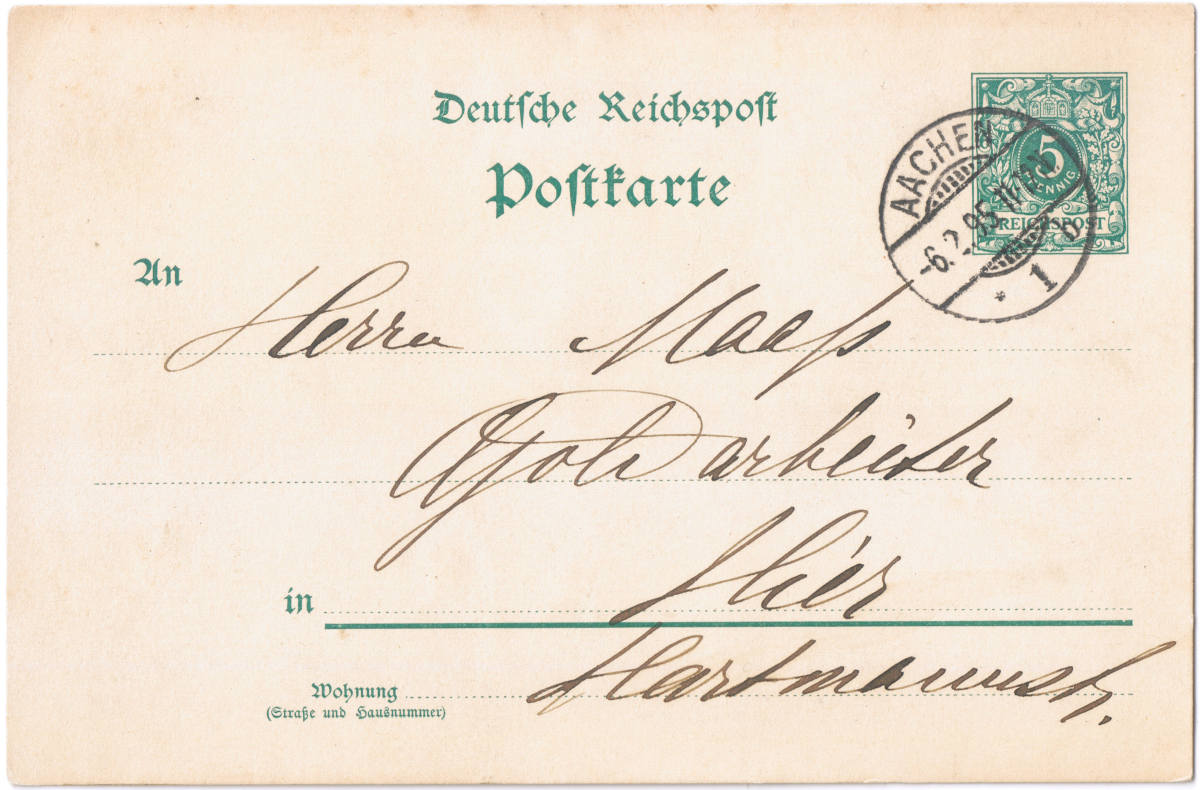 Deutsche Reichspost
Postkarte
5
PFENNIG
REICHSPOST
AACHEN
-6.2.95.11-12V.
* 1 b
An
Herrn Maaß
Goldarbeiter
in
Hier
Wohnung
(Straße und Hausnummer)
Hartmannstr.